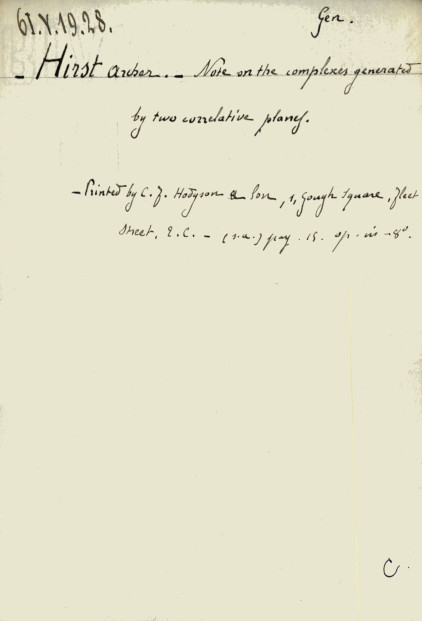 61.V.19.28.
Gen.
- Hirst Archer. - Note on the complexes generated
by two correlative planes.
- Printed by C. F. Hodgson & Son, 1, Gough Square, Fleet
Street, E.C. - (s.a.) pag. 15. op. in-8°.
C.